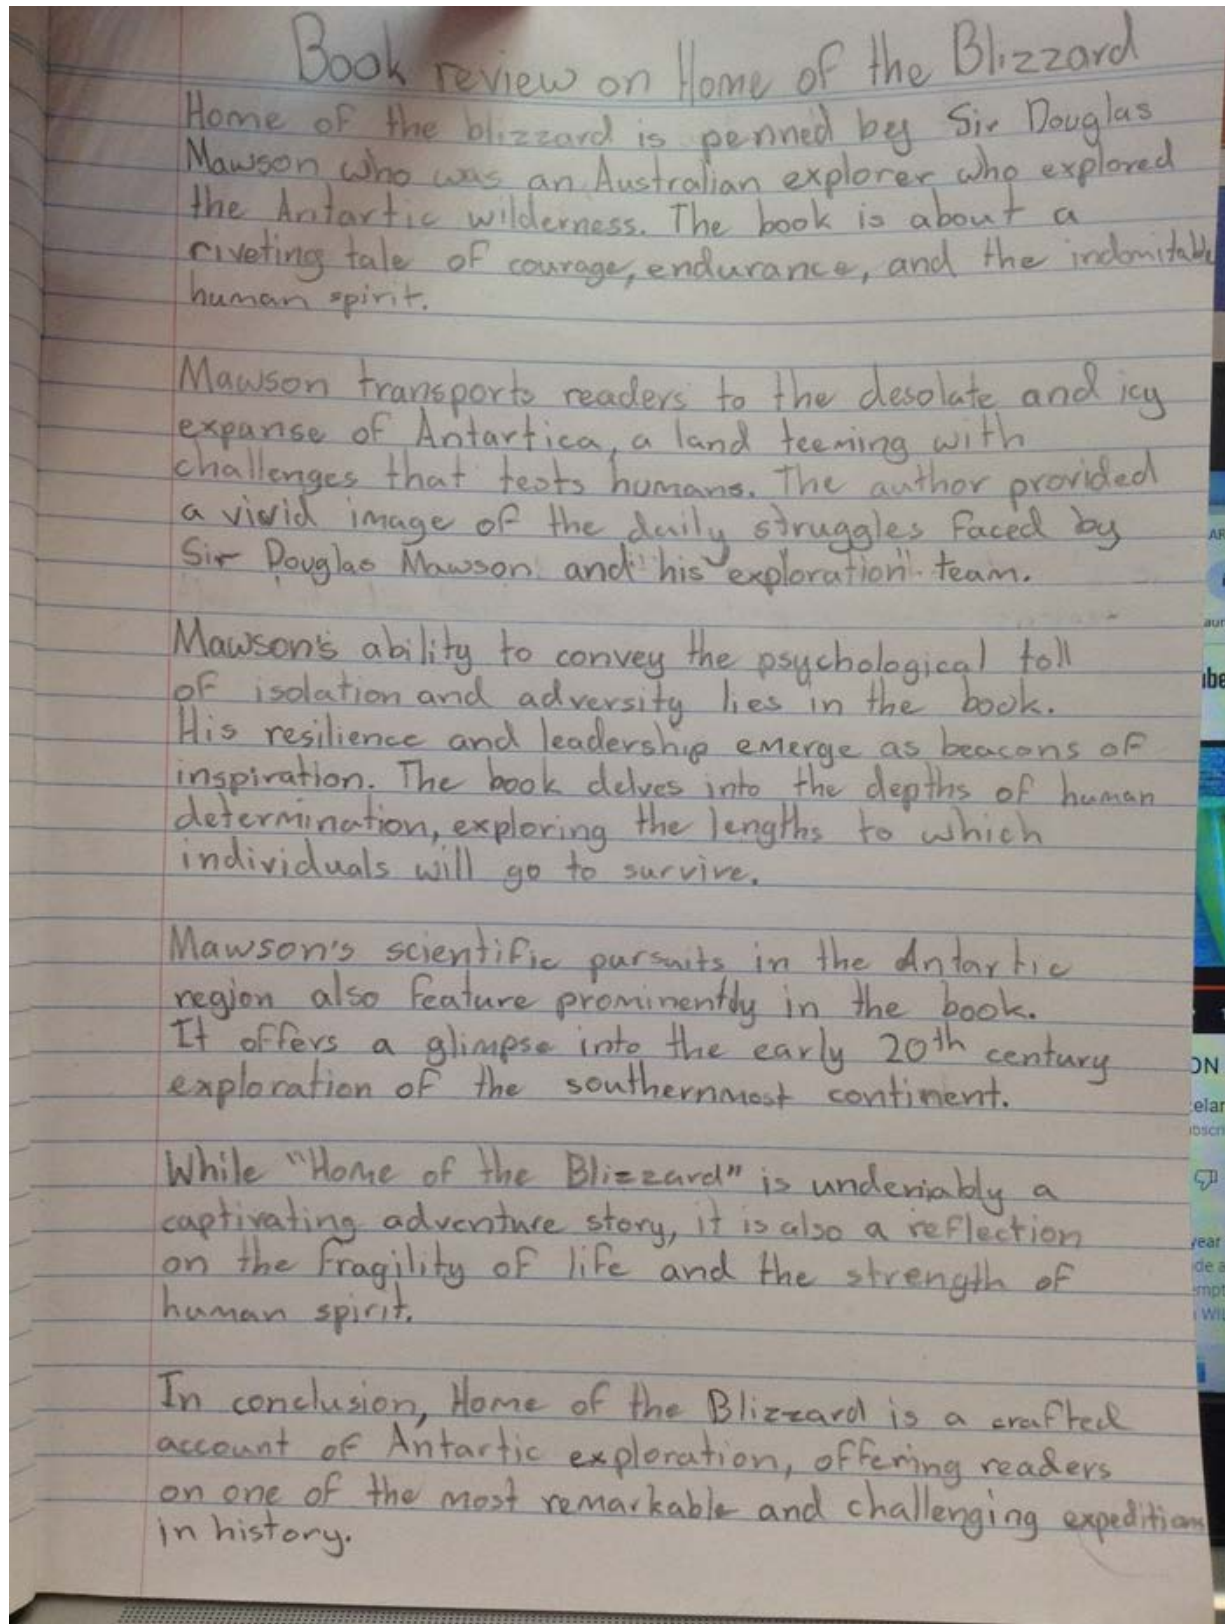 Book review on Home of the Blizzard
Home of the blizzard is penned by Sir Douglas
Mawson who was an Australian explorer who explored
the Antartic wilderness. The book is about a
riveting tale of courage, endurance, and the indomitable
human spirit.
Mawson transports readers to the desolate and icy
expanse of Antartica, a land teeming with
challenges that tests humans. The author provided
a vivid image of the daily struggles faced by
Sir Douglas Mawson and his exploration team.
Mawson's ability to convey the psychological toll
of isolation and adversity lies in the book.
His resilience and leadership emerge as beacons of
inspiration. The book delves into the depths of human
determination, exploring the lengths to which
individuals will go to survive.
Mawson's scientific pursuits in the Antartic
region also feature prominently in the book.
It offers a glimpse into the early 20th century
exploration of the southernmost continent.
While "Home of the Blizzard" is undeniably a
captivating adventure story, it is also a reflection
on the fragility of life and the strength of
human spirit.
In conclusion, Home of the Blizzard is a crafted
account of Antartic exploration, offering readers
on one of the most remarkable and challenging expeditions
in history.